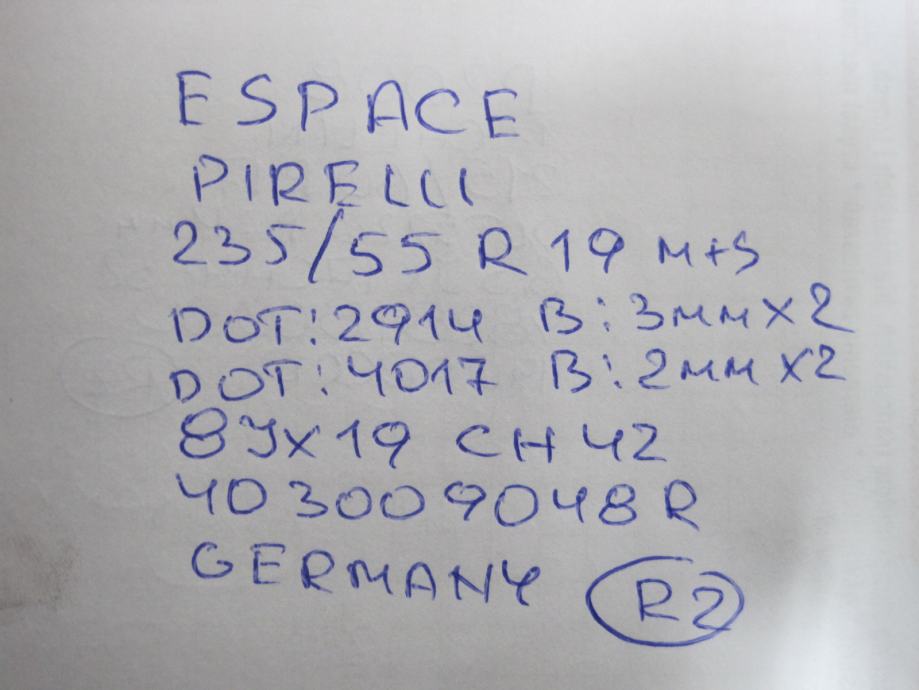 ESPACE
PIRELLI
235/55 R 19 M+S
DOT:2914 B:3mmx2
DOT:4017 B:2mmx2
8Jx19 CH42
403009048R
GERMANY R2